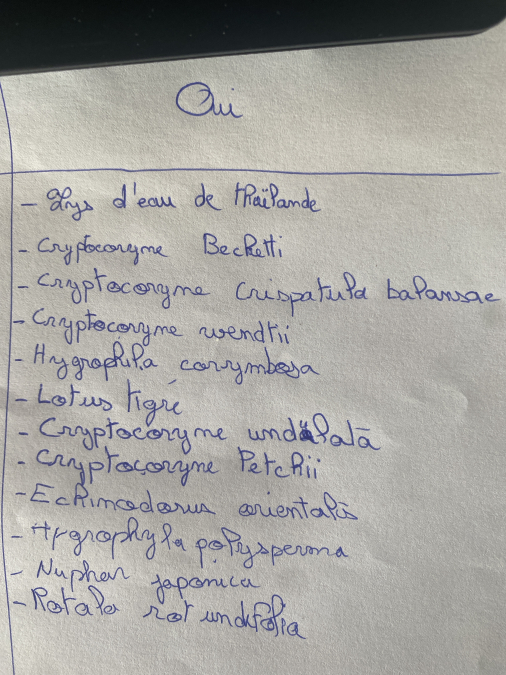 Oui
- Lys d'eau de thaïlande
- Cryptocoryme Becketti
- Cryptocoryme crispatula balansae
- Cryptocoryme wendtii
- Hygrophila corymbosa
- Lotus tigré
- Cryptocoryme undulata
- Cryptocoryne Petchii
- Echimodorus orientalis
- Hygrophyla polysperma
- Nuphar japonica
- Rotala rotundifolia